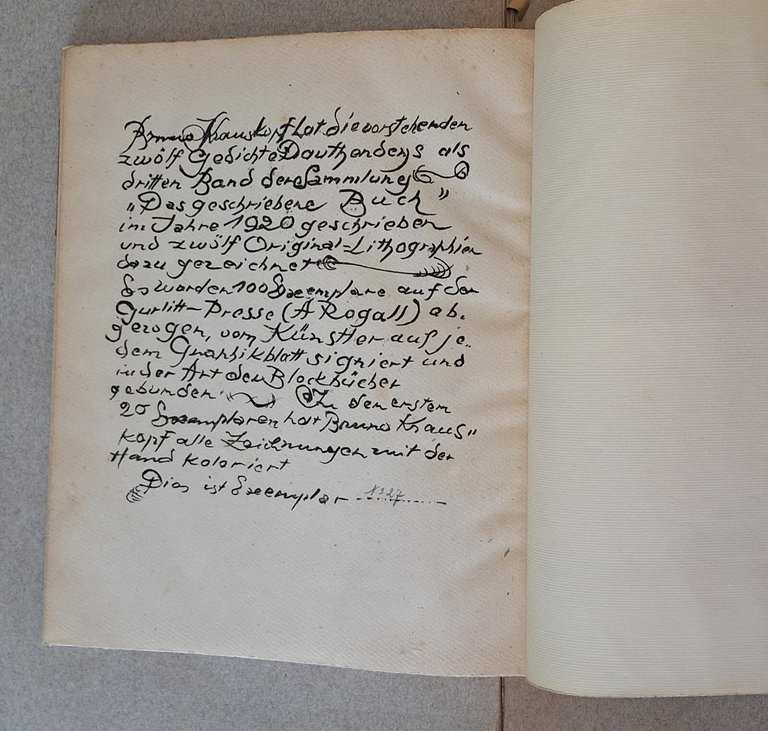 Bruno Krauskopf hat die vorstehenden
zwölf Gedichte Dauthendeys als
dritten Band der Sammlung
"Das geschriebene Buch"
im Jahre 1920 geschrieben
und zwölf Original-Lithographien
dazu gezeichnet
Es wurden 100 Exemplare auf der
Gurlitt-Presse (A Rogall) ab-
gezogen, vom Künstler auf je-
dem Graphikblatt signiert und
in der Art der Blockbücher
gebunden. In den ersten
20 Exemplaren hat Bruno Kraus"
kopf alle Zeichnungen mit der
Hand koloriert
Dies ist Exemplar No 27